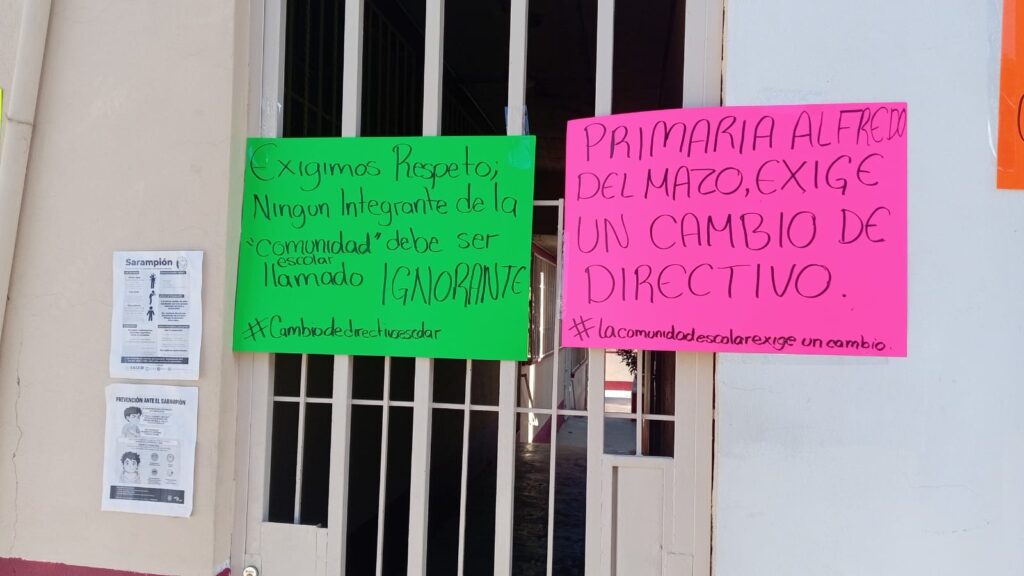 Sarampión
PREVENCIÓN ANTE EL SARAMPIÓN
Exigimos Respeto;
Ningun Integrante de la
"comunidad" debe ser
escolar
llamado IGNORANTE
#Cambiodedirectivoescolar
PRIMARIA ALFREDO
DEL MAZO, EXIGE
UN CAMBIO DE
DIRECTIVO.
#lacomunidadescolarexige un cambio.